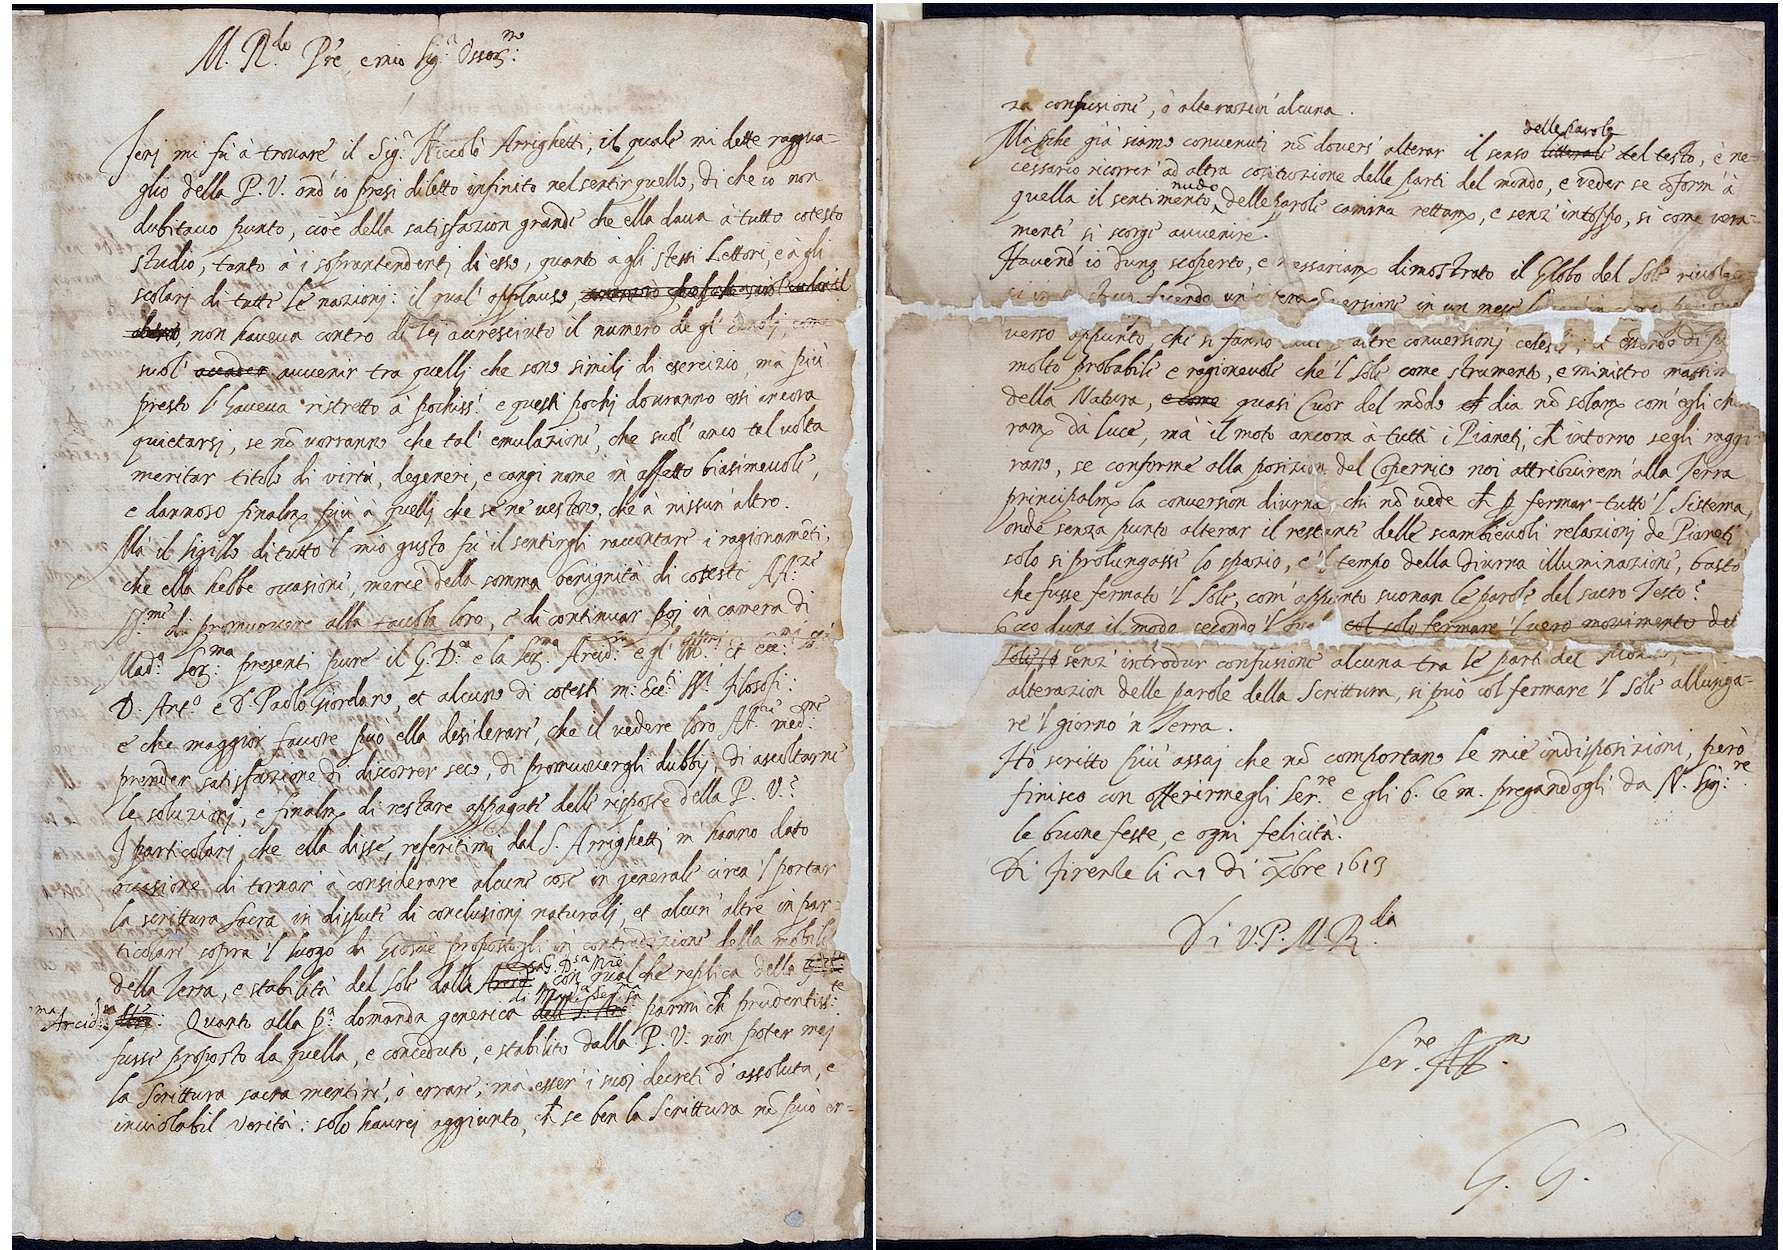 M. R.do Pre e mio Sig.r Osser.mo
Ierj mi fù à trovare il Sig.r Niccolò Arrighetti, il quale mi dette raggua-
glio della P. V. ond' io presi diletto infinito nel sentir quello, di che io non
dubitavo punto, cioè della satisfazion grande che ella dava à tutto cotesto
studio, tanto à i soprantendentj di esso, quanto à gli stessi Lettori, e à gli
scolarj di tutte le nazionj: il qual' applauso,
non haveva contro di lej accresciuto il numero de gl' emolj, come
suol' accader avvenir tra quellj che sono similj di esercizio, ma più
presto l' haveva ristretto à pochiss.i e questi pochj dovranno essi ancora
quietarsj, se nõ vorranno che tal' emulazione, che suol' anco tal volta
meritar titolo di virtù, degeneri, e cangi nome in affetto biasimevole,
e dannoso finalm.e più à quellj che se ne vestono, che à nissun' altro.
Mà il sigillo di tutto 'l mio gusto fù il sentirgli raccontare i ragionamẽti,
che ella hebbe occasione, mercè della somma benignità di coteste AA.ze
S.me di promuovere alla tavola loro, e di continuar poj in camera di
Mad.a Ser.ma presenti pure il G. D.a e la Ser.ma Arcid.a e gl' Ill.mi et Ecc.mi SS.ri
D. Ant.o e D. Paolo Giordano, et alcuno di cotesti m: Ecc.ti SS.i filosofi:
e che maggior favore può ella desiderare, che il vedere loro AA.ze med.me
prender satisfazione di discorrer seco, di promuovergli dubbij, di ascoltarne
le soluzionj, e finalm.e di restare appagate delle risposte della P. V.?
I particolarj, che ella disse, referitimi dal S. Arrighetti m' hanno dato
occasione di tornar' à considerare alcune cose in generale circa 'l portar
la scrittura sacra in dispute di conclusionj naturalj, et alcun' altre in par-
ticolare sopra 'l luogo di Giosuè propostogli in contradizione della mobilità
sa G. D.sa M.re
della Terra, e stabilità del Sole dalla Arcid. con qualche replica della
di Mad.a Ser.ma
Arcid.a Ser.ma Quanto alla p.a domanda generica parmi ch prudentiss.te
fusse proposto da quella, e conceduto, e stabilito dalla P. V. non poter mej
la Scrittura sacra mentire, ò errare; mà esser' i suoj decreti d' assoluta, e
inviolabil verità: solo haurej aggiunto, ch se ben la Scrittura nõ può er-
za confusione, ò alterazion' alcuna.
delle parole
Mà poi che già siamo convenuti nõ dovers' alterar il senso litterale del testo, è ne-
cessario ricorrer' ad altra costituzione delle parti del mondo, e veder se cõform' à
nudo
quella il sentimento delle parole camina rettam.e, e senz' intoppo, sì come vera-
mente si scorge avvenire.
Havend' io dunq scoperto, e necessariam.e dimostrato il Globo del Sole rivolger
si in se stesso, facendo un' intera conversione in un mese
verso appunto, che si fanno tutte l' altre conversionj celesti; et essendo di più
molto probabile e ragionevole che 'l Sole come strumento, e ministro massimo
della Natura, e come quasi Cuor del mõdo dia nõ solam.e com' egli chia-
ram.e dà luce, mà il moto ancora à tutti i Pianeti, ch' intorno se gli raggi-
rano, se conforme alla posizion del Copernico noi attribuirem' alla Terra
principalm.e la conversion diurna, chi nõ vede ch p fermar tutto 'l Sistema,
onde senza punto alterar il restante delle scambievoli relazionj de Pianeti
solo si prolungasse lo spazio, e 'l tempo della diurna illuminazione, bastò
che fusse fermato 'l Sole, com' appunto suonan le parole del sacro Testo?
Ecco dunq il modo secondo 'l qual col solo fermare 'l vero movimento del
Sole, senz' introdur confusione alcuna tra le parti del Mondo,
alterazion delle parole della Scrittura, si può col fermare 'l Sole allunga-
re 'l giorno 'n Terra.
Hò scritto più assaj che nõ comportano le mie indisposizioni, però
finisco con offerirmegli Ser.re e gli b. le m. pregandogli da N. Sig.re
le buone feste, e ogni felicità.
Di firenze li 21 di Xbre 1613
Di V. P. M. R.da
Ser.re Aff.mo
G. G.